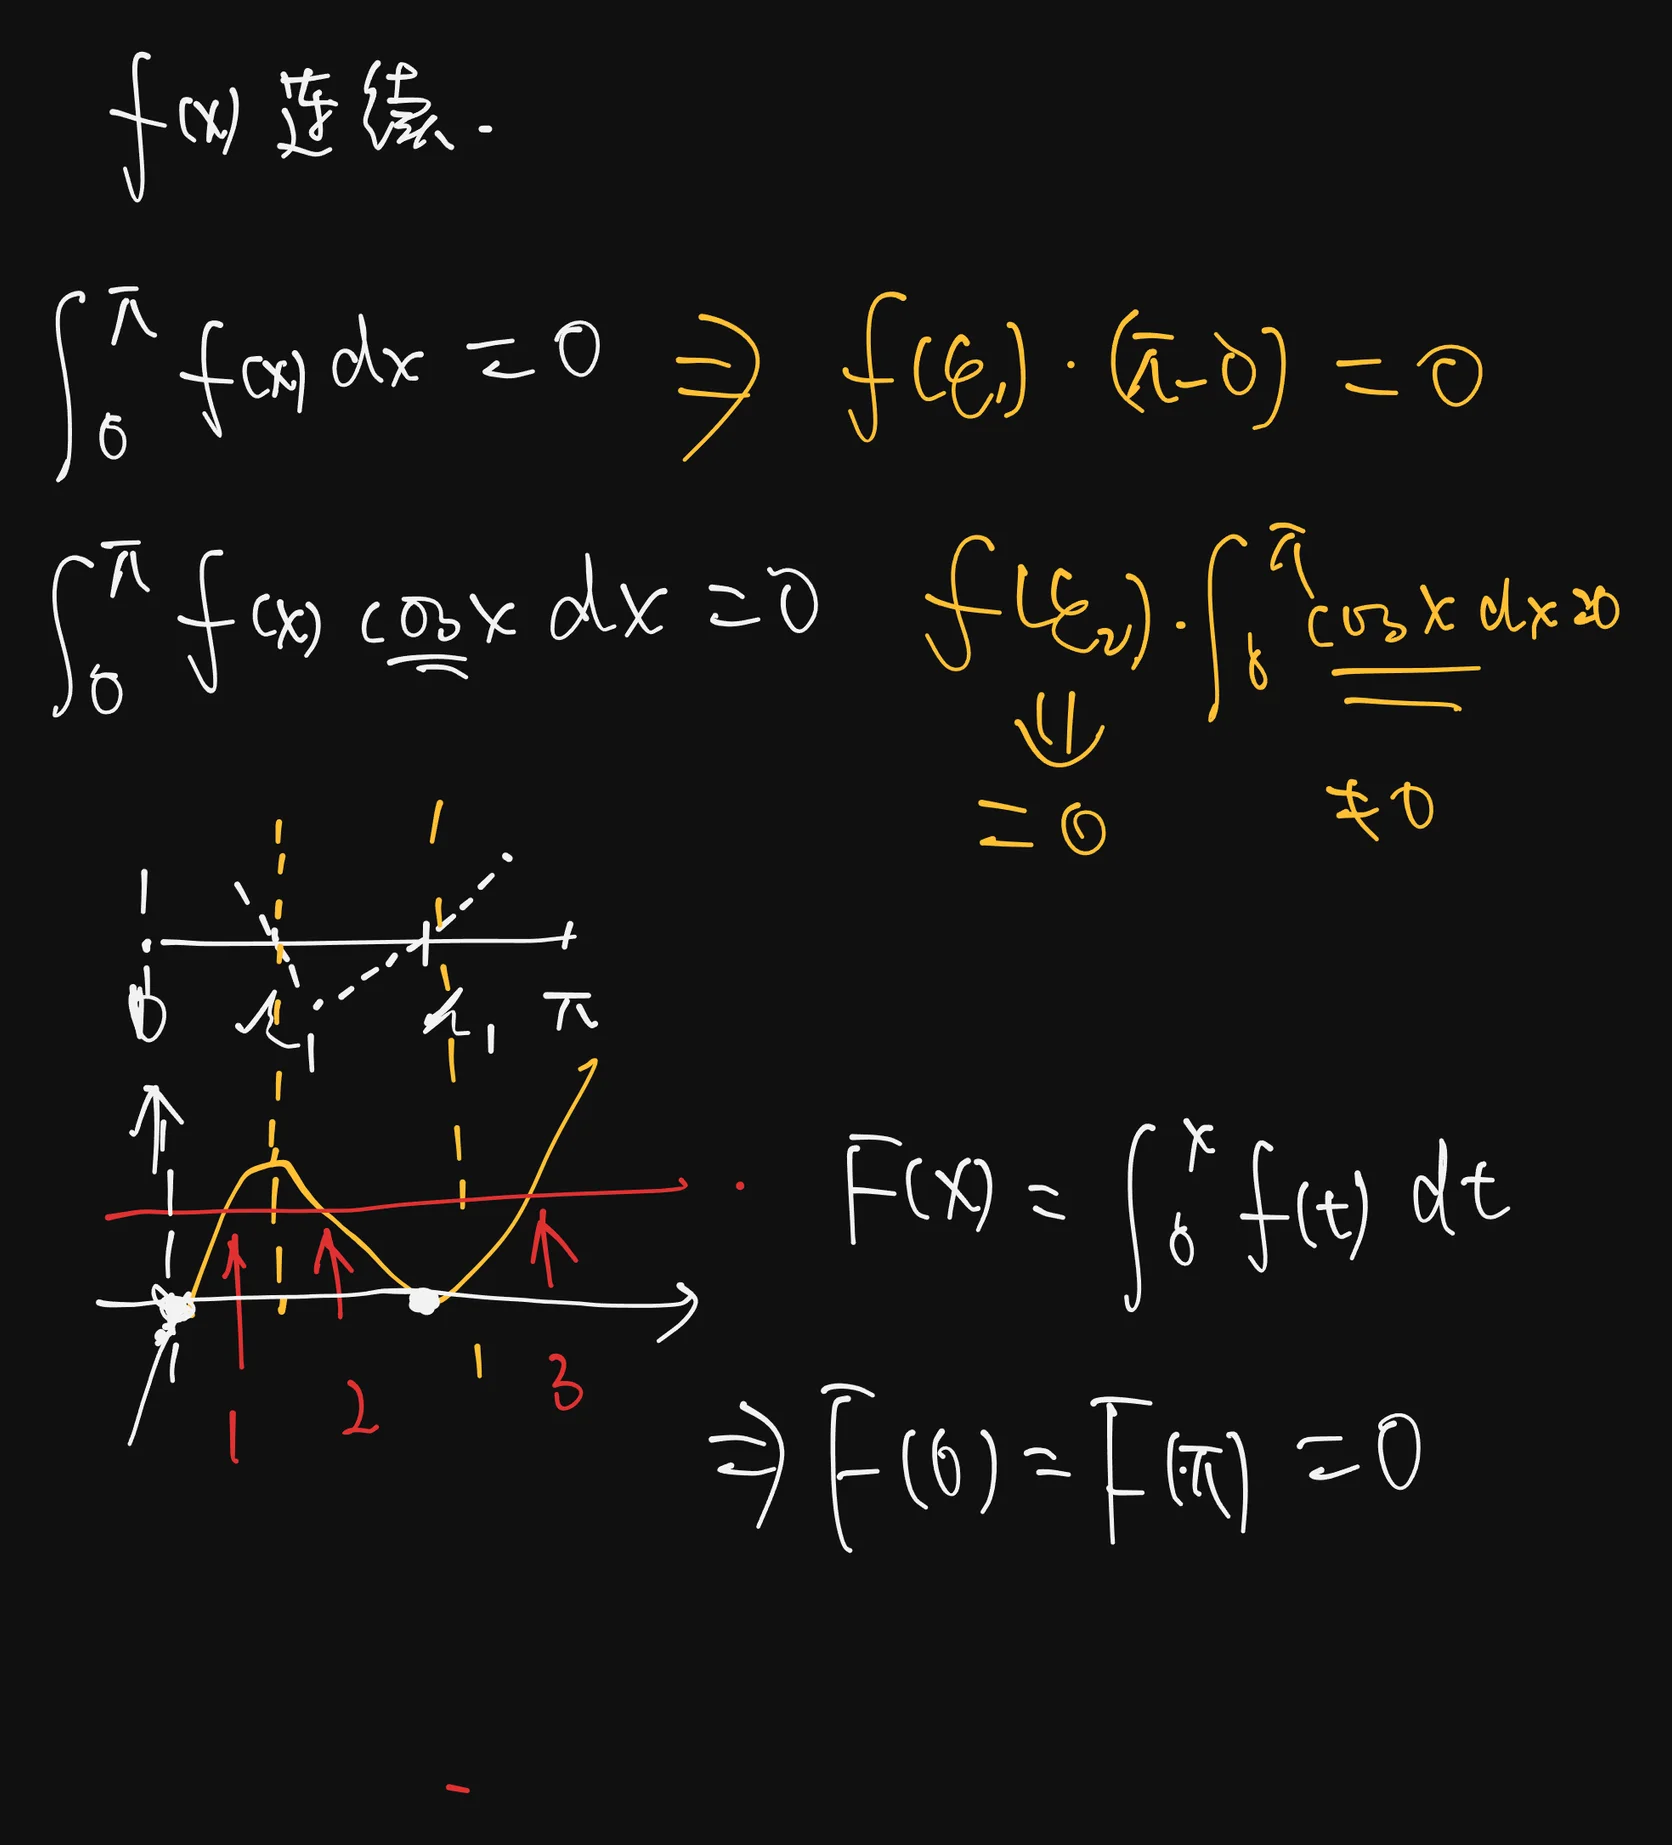 f(x) 连续.
∫₀^π f(x) dx = 0 ⇒ f(ξ₁) · (π-0) = 0
∫₀^π f(x) cos x dx = 0 f(ξ₂) · ∫₀^π cos x dx = 0
⇓
= 0 ≠ 0
0 π
F(x) = ∫₀^x f(t) dt
1 2 3
⇒ F(0) = F(π) = 0